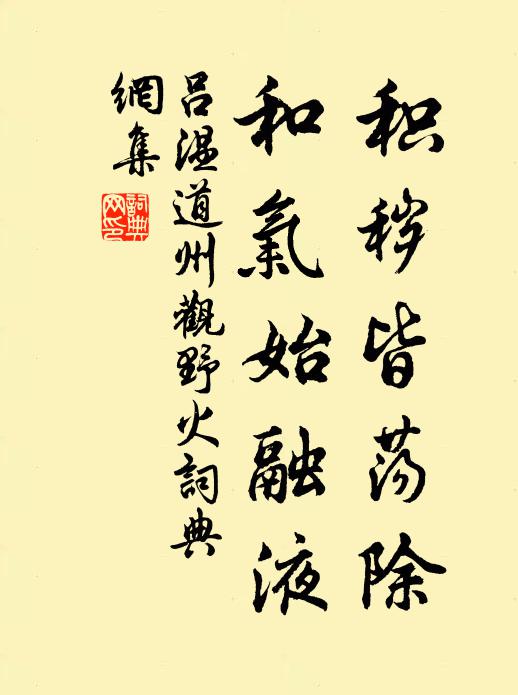 积秽皆荡除
和氣始融液
吕溫道州觀野火詞典
網集
詞典
网印